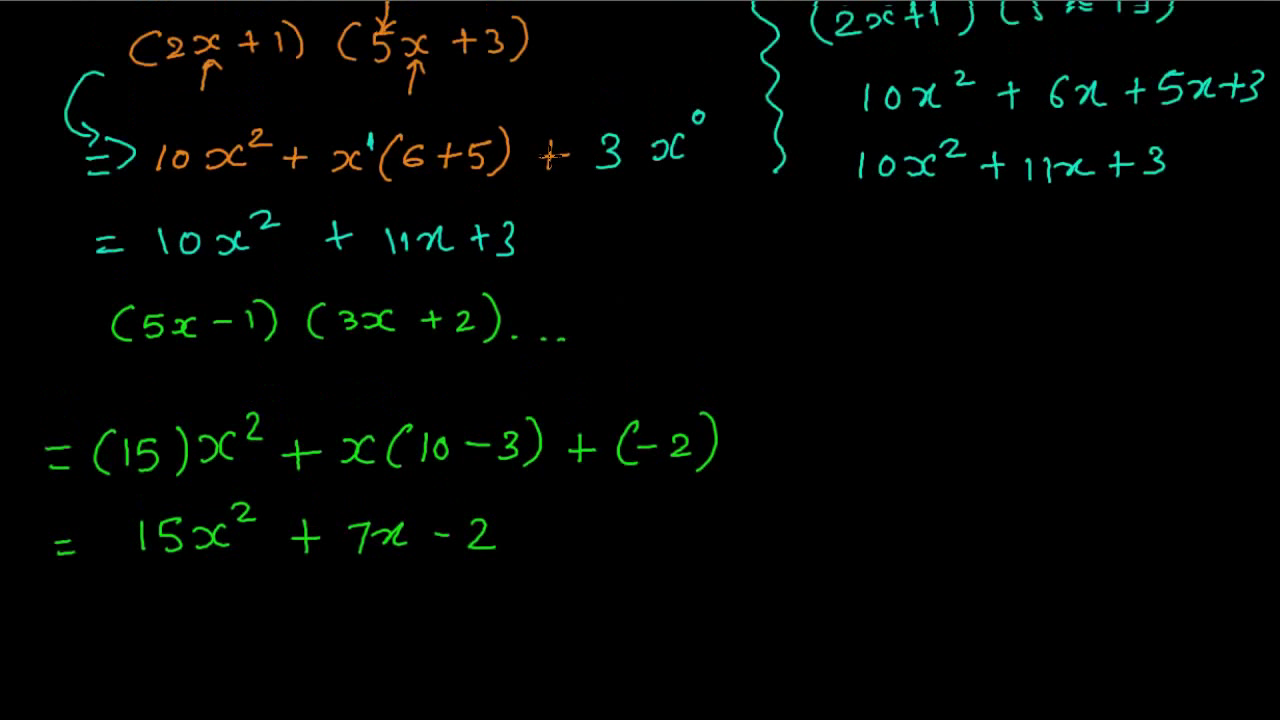 (2x + 1) (5x + 3)
=> 10x² + x¹(6+5) + 3x⁰
= 10x² + 11x + 3
(5x - 1) (3x + 2)...
= (15)x² + x(10 - 3) + (-2)
= 15x² + 7x - 2
(2x+1)
10x² + 6x + 5x+3
10x² + 11x + 3